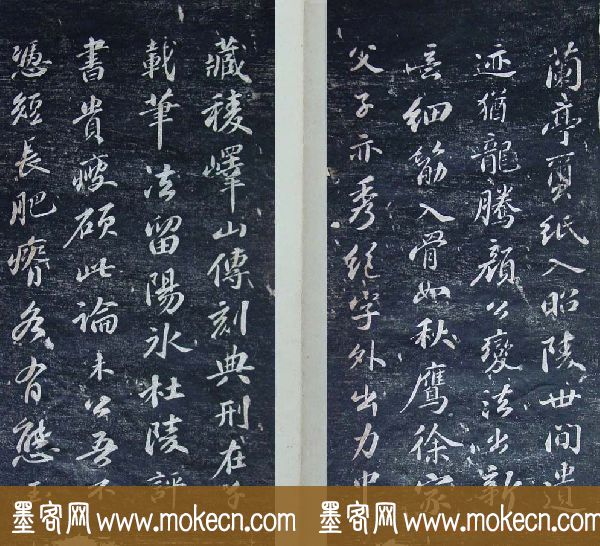 蘭亭繭紙入昭陵世間遺
迹猶龍騰顏公變法出新
意細筋入骨如秋鷹徐家
父子亦秀絕字外出力中
藏稜嶧山傳刻典刑在千
載筆法留陽冰杜陵評
書貴瘦硬此論未公吾不
憑短長肥瘠各有態
墨客网 www.mokecn.com
墨客网 www.mokecn.com